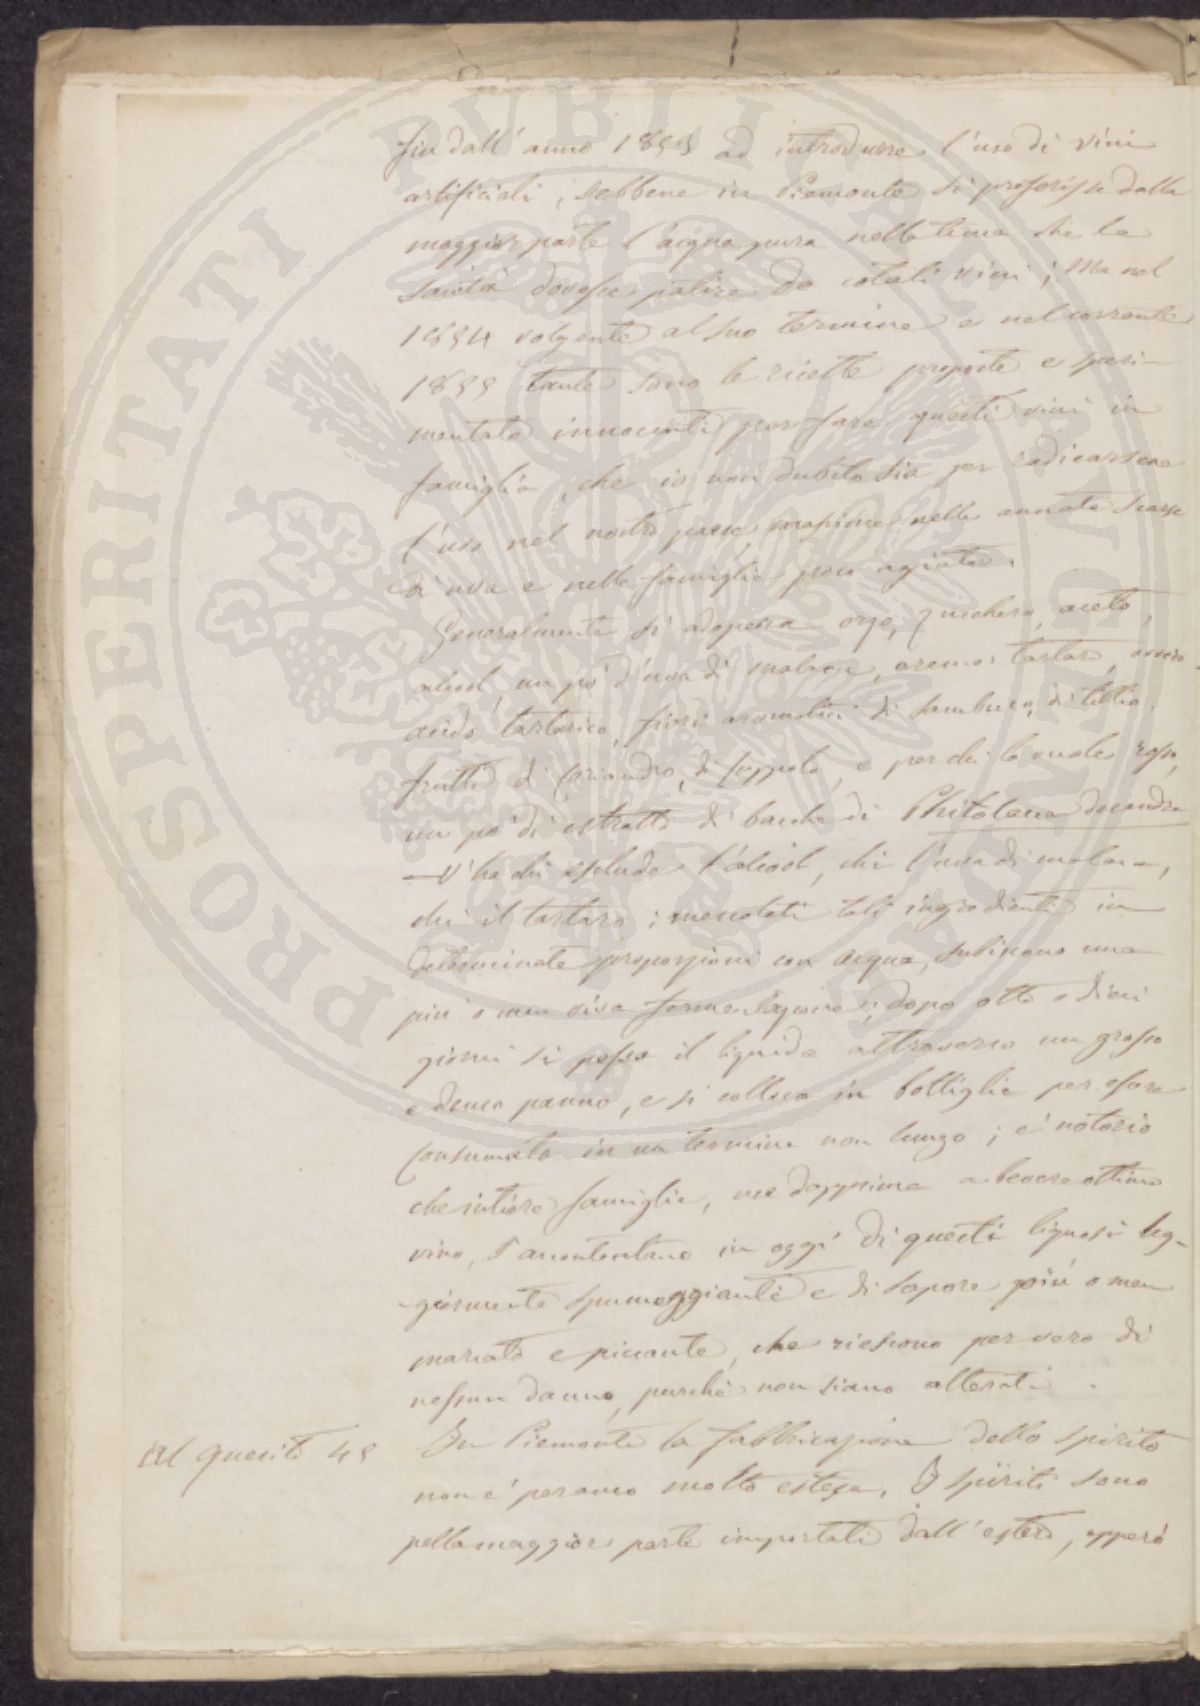 fin dall' anno 1853 ad introdurre l'uso di vini
artificiali, sebbene in Piemonte si preferisse dalla
maggior parte l'acqua pura nella tema che la
sanità dovesse patire da cotali vini; Ma nel
1854 volgente al suo termine e nel corrente
1855 tante sono le ricette proposte e speri-
mentate innocenti per fare questi vini in
famiglia, che io non dubito sia per radicarsene
l'uso nel nostro paese massime nelle annate scarse
di uva e nelle famiglie poco agiate.
Generalmente si adopera orzo, zucchero, aceto,
alcool, un po' d'uva di malaga, cremor tartaro, ovvero
acido tartarico, fiori aromatici di sambuco, di tiglio,
frutti di Coriandro, di luppolo, e per chi lo vuole rosso,
un po' di estratto di bacche di Phitolacca decandra
V'ha chi esclude l'alcool, chi l'uva di malaga,
chi il tartaro; mescolati tali ingredienti in
determinate proporzioni con acqua, subiscono una
più o men viva fermentazione; dopo otto o dieci
giorni si passa il liquido attraverso un grosso
e denso panno, e si colloca in bottiglie per essere
consumato in un termine non lungo; è notorio
che intiere famiglie, use dapprima a bevere ottimo
vino, s'accontentano in oggi di questi liquori leg-
giermente spumeggianti e di sapore più o men
marcato e piccante, che riescono per vero di
nessun danno, purchè non siano alterati.
Al quesito 45 In Piemonte la fabbricazione dello spirito
non è peranco molto estesa. Gli spiriti sono
pella maggior parte importati dall' estero, epperò